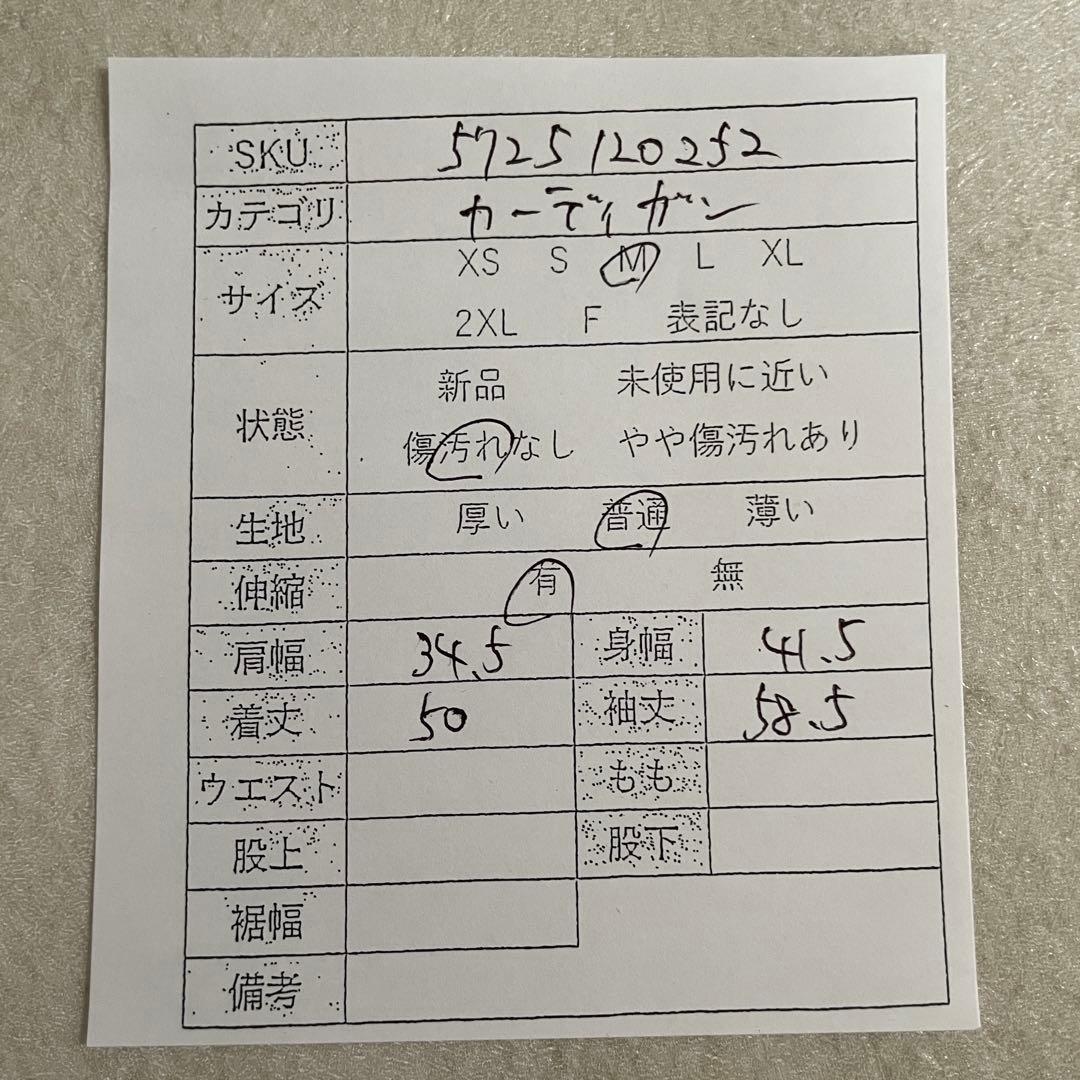 SKU 5725120252
カテゴリ カーディガン
サイズ XS S M L XL
2XL F 表記なし
状態 新品 未使用に近い
傷汚れなし やや傷汚れあり
生地 厚い 普通 薄い
伸縮 有 無
肩幅 34.5 身幅 41.5
着丈 50 袖丈 58.5
ウエスト もも
股上 股下
裾幅
備考